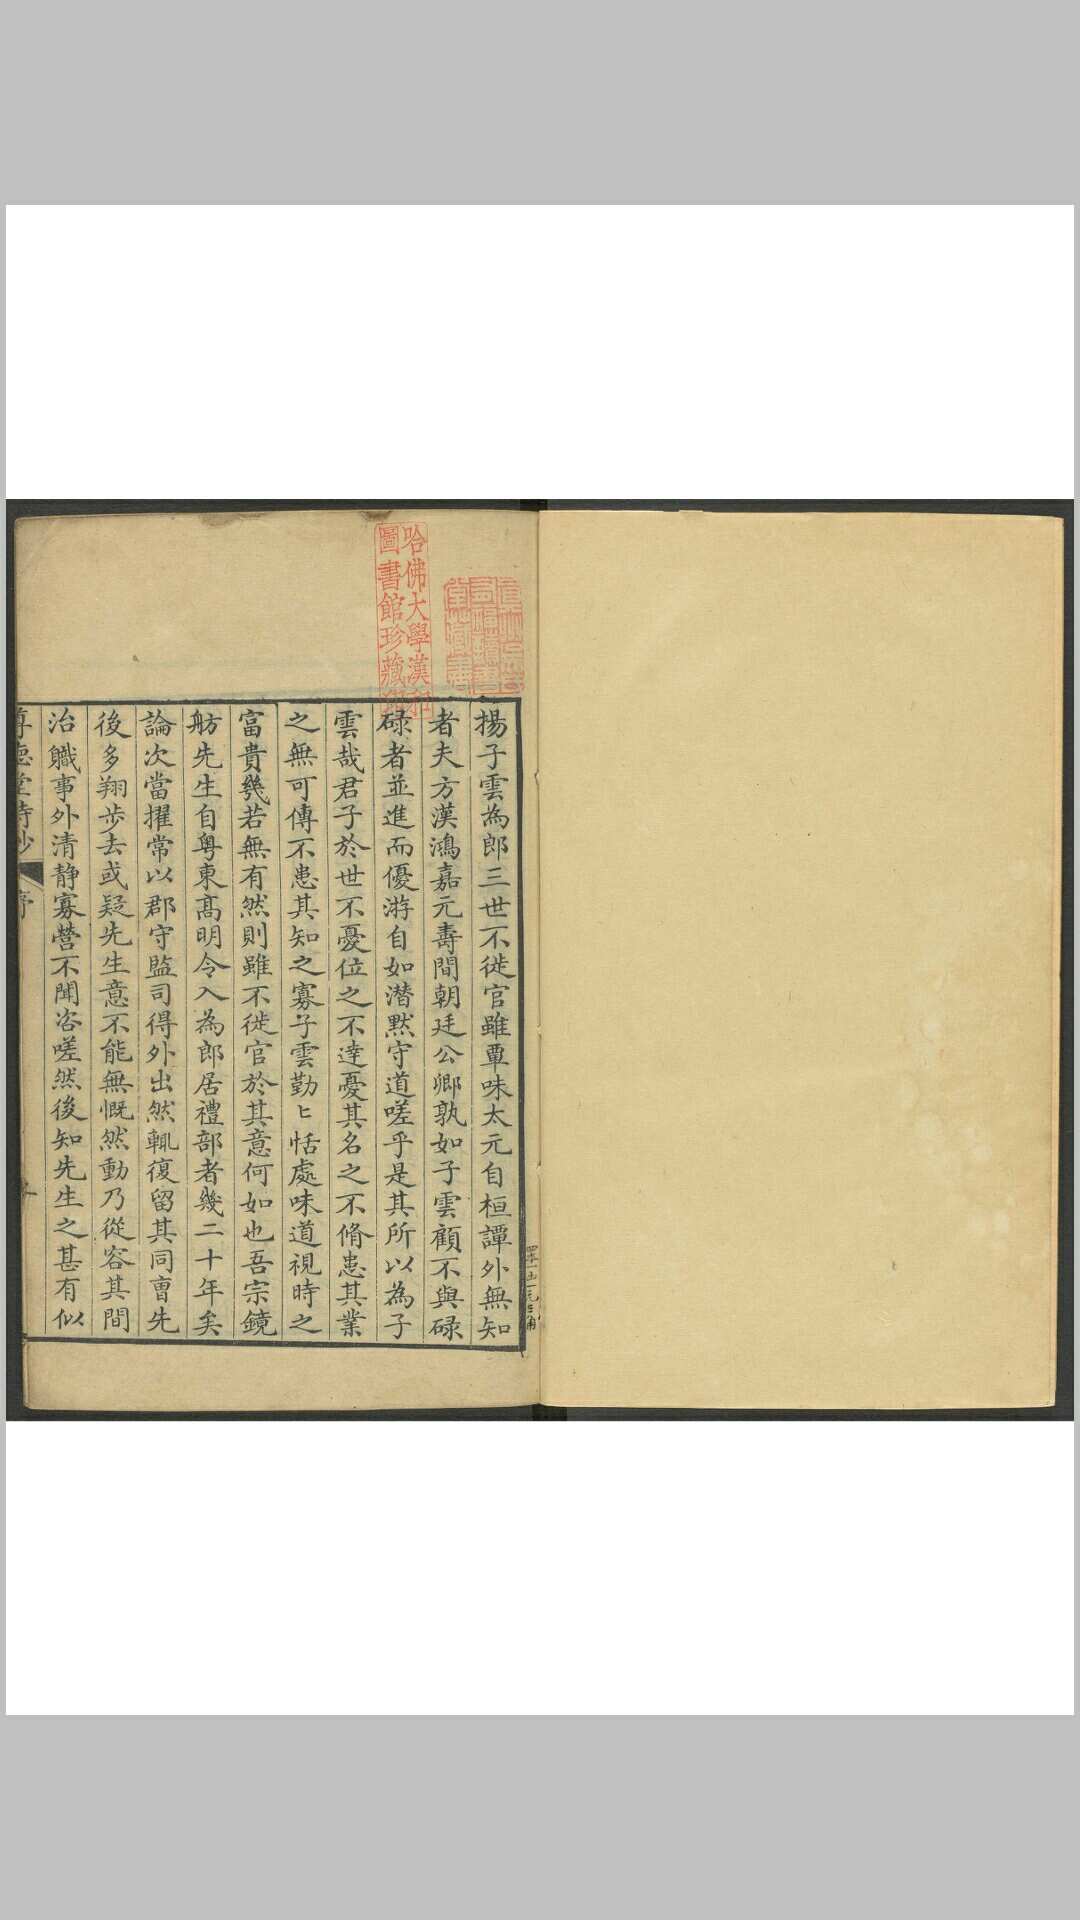 揚子雲為郎三世不徙官雖覃味太元自桓譚外無知
者夫方漢鴻嘉元壽間朝廷公卿孰如子雲顧不與碌
碌者並進而優游自如潜黙守道嗟乎是其所以為子
雲哉君子於世不憂位之不達憂其名之不脩患其業
之無可傳不患其知之寡子雲勤〻恬處味道視時之
富貴幾若無有然則雖不徙官於其意何如也吾宗鏡
舫先生自粤東高明令入為郎居禮部者幾二十年矣
論次當擢常以郡守監司得外出然輒復留其同曺先
後多翔步去或疑先生意不能無慨然動乃從容其間
治軄事外清静寡營不聞咨嗟然後知先生之甚有似
尊德堂詩鈔
序
哈佛大學漢和
圖書館珍藏印